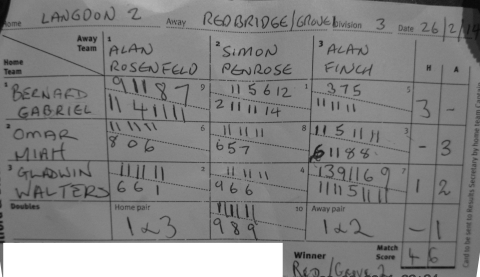 Home LANGDON 2 Away REDBRIDGE/GROVE Division 3 Date 26/2/14
Away Team 1 ALAN ROSENFELD 2 SIMON PENROSE 3 ALAN FINCH H A
Home Team
1 BERNARD GABRIEL 9 11 8 7 9 11 5 6 12 1 3 7 5 5
11 4 11 11 2 11 11 14 11 11 11 3 -
2 OMAR MIAH 11 11 11 6 11 11 11 8 11 5 11 11 3
8 0 6 6 5 7 6 11 8 8 - 3
3 GLADWIN WALTERS 11 11 11 2 11 11 11 4 13 9 11 6 9 7
6 6 1 9 6 6 11 11 5 11 11 1 2
Doubles Home pair 11 11 11 10 Away pair
1+3 9 8 9 1+2 - 1
Winner Match Score 4 6
Card to be sent to Results Secretary by home team